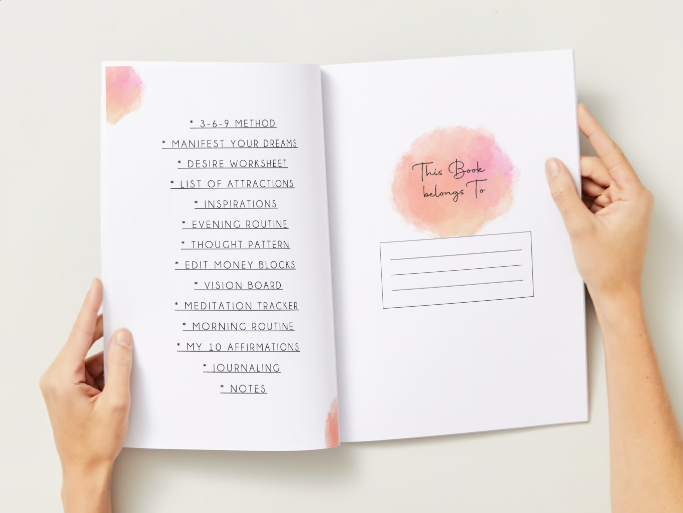 * 3-6-9 METHOD
* MANIFEST YOUR DREAMS
* DESIRE WORKSHEET
* LIST OF ATTRACTIONS
* INSPIRATIONS
* EVENING ROUTINE
* THOUGHT PATTERN
* EDIT MONEY BLOCKS
* VISION BOARD
* MEDITATION TRACKER
* MORNING ROUTINE
* MY 10 AFFIRMATIONS
* JOURNALING
* NOTES
This Book
belongs To